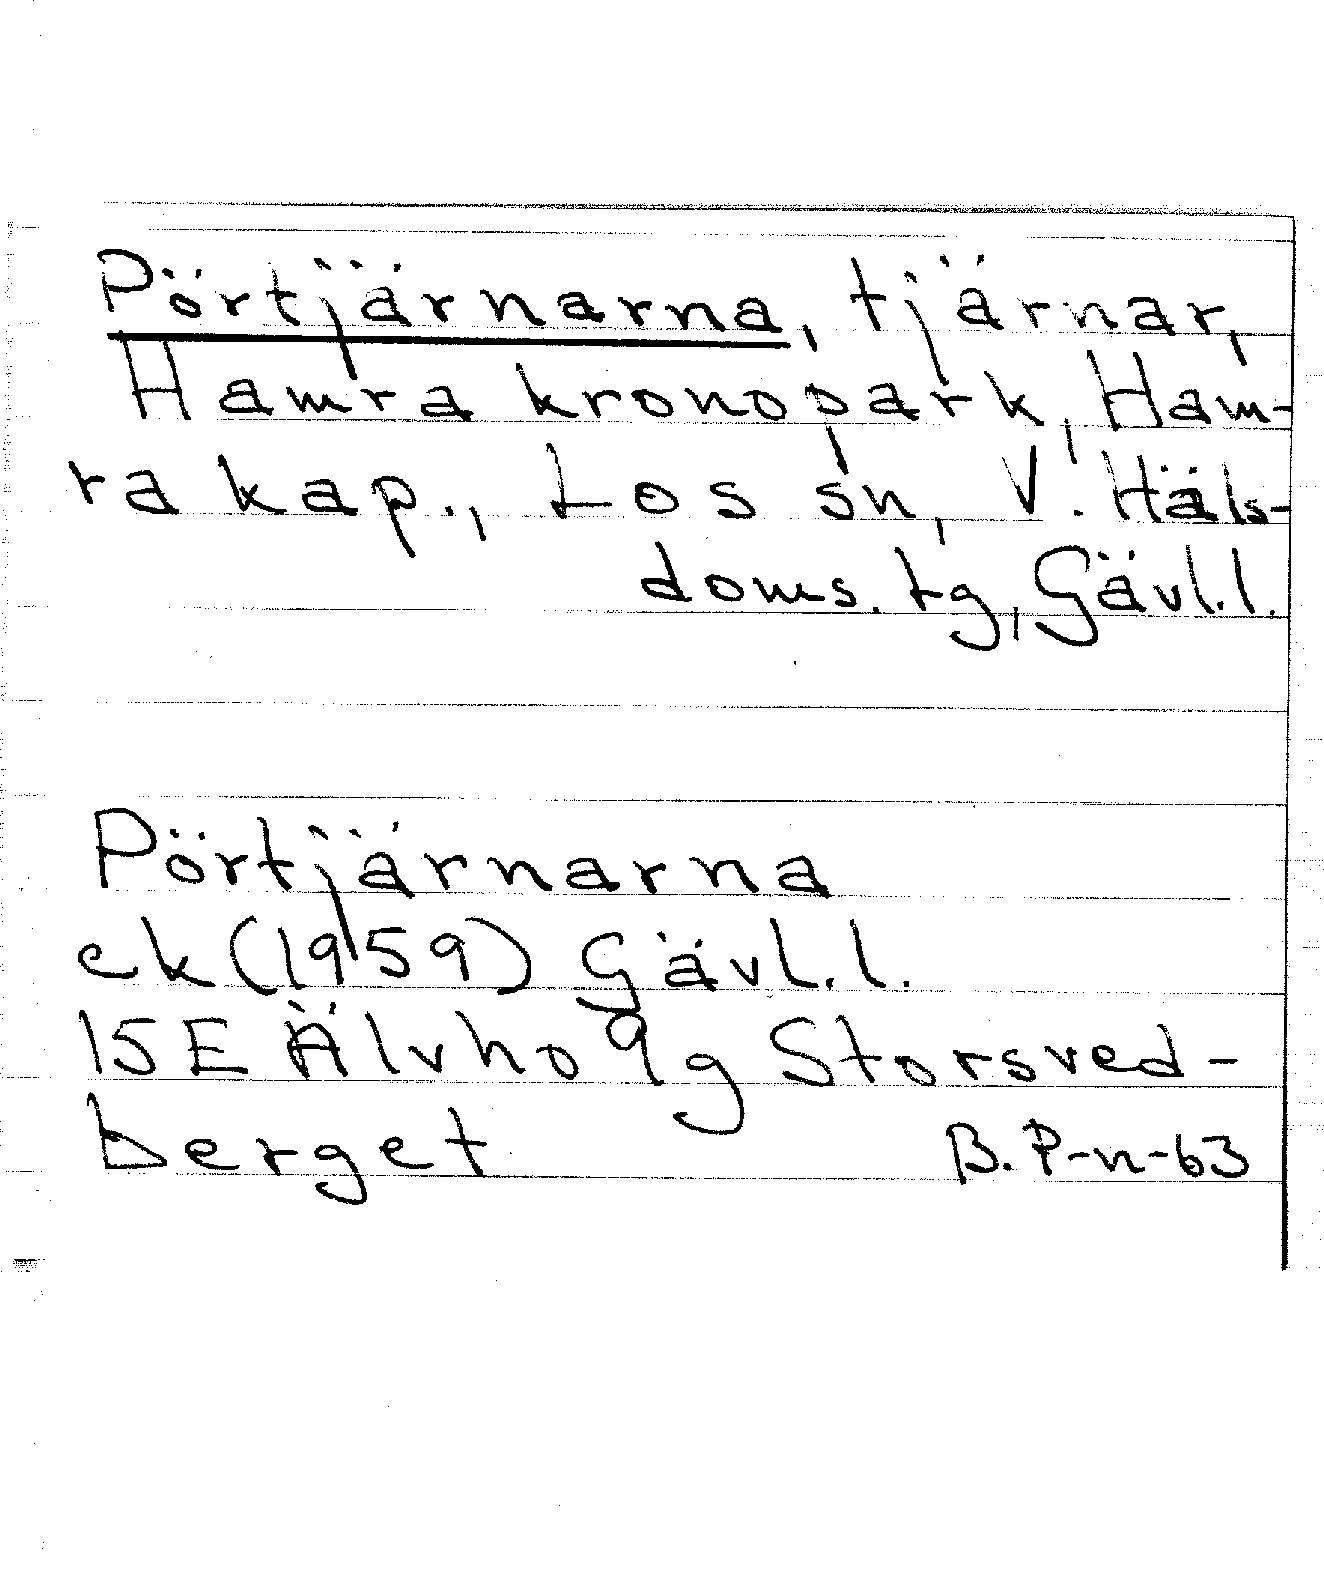 Pörtjärnarna, tjärnar,
Hamra kronopark, Ham-
ra kap., Los sn, V. Häls-
doms. tg, Gävl.l.
Pörtjärnarna
ek (1959) Gävl.l.
15E Älvho 9g Storsved-
berget B. P-n-63